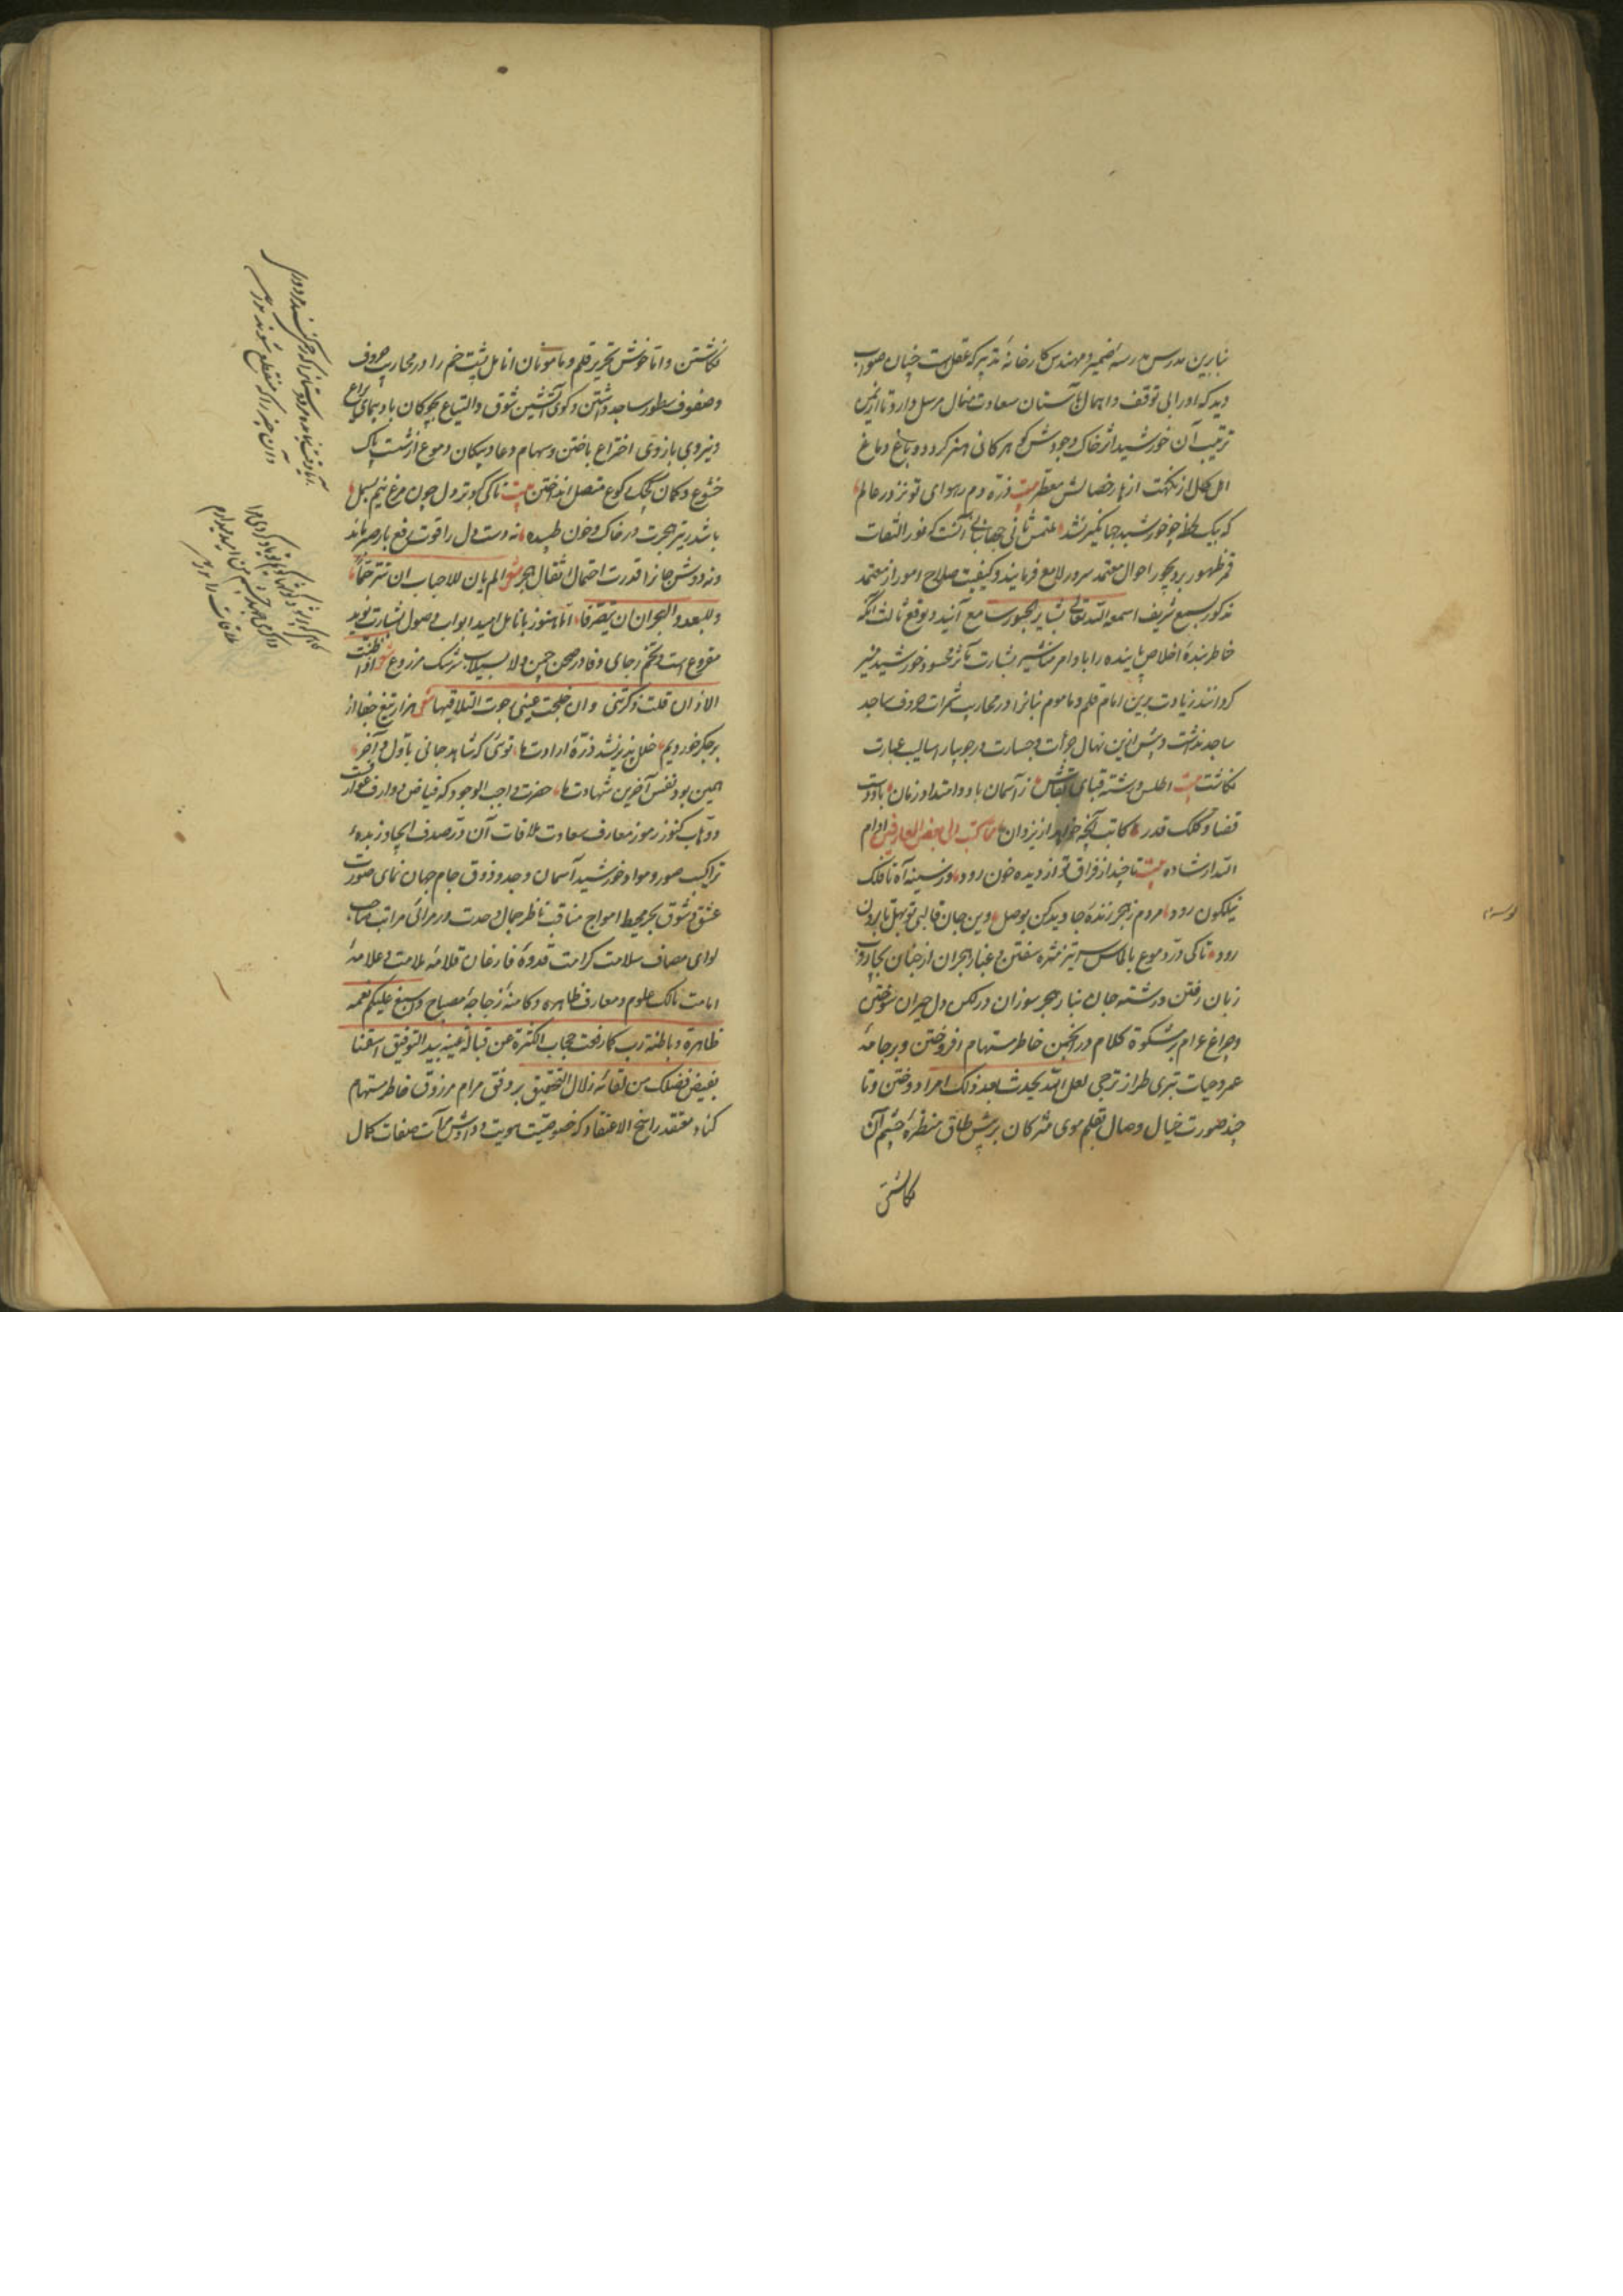 بنابرین مدرس مدرسهٔ ضمیر و مهندس کارخانهٔ تدبیر که عقلست چنان صواب
دید که او را بی توقف و اهمال بآستان سعادت منال مرسل دارد تا از یمن
تربیت آن خورشید اثر خاک وجودش گوهر کانی هنر گردد و باغ دماغ
اهل کمال از نکهت ازهار خصالش معطر بیت ذره دم در هوای تو نزد در عالم
که بیک لحظه چو خورشید جهانگیر نشد ملتمس ثانی آنست که نور التفات
قمر ظهور بر دیجور احوال معتمد سرور لامع فرمایند و کیفیت صلاح امور از معتمد
مذکور بسمع شریف اسمعه الله تعالی بشایر الحبور سامع آیند و توقع ثالث آنکه
خاطر بندهٔ اخلاص پاینده را باوامر مناشیر بشارت مآثر محسود خورشید منیر
گردانند زیادت برین امام قلم و ماموم بنانرا در محاریب ثمرات حروف ساجد
ساجد نداشت و بیش ازین نهال جرأت و جسارت در جویبار اسالیب عبارت
نکاشت بیت اطلس و رشته قبای بقاش ز آسمان باد و امتداد زمان بادوت
قضا و کلک قدر کاتب آنچه خواهد از یزدان مما کتب الی بعض العارفین ادام
الله ارشاده بیت تا چند از فراق تو از دیده خون رود وز سینه آه تا فلک
نیلگون رود مردم ز هجر زندهٔ جاوید کن بوصل وین جان قالبی تو بهل تا برون
رود تا کی در دموع بالماس سرتیز مژه سفتن و غبار هجران از جنان بجاروب
زبان رفتن و رشتهٔ جان بنار هجر سوزان در لگن دل حیران سوختن
و چراغ غرام بر مشکوة کلام در انجمن خاطر مستهام افروختن و بر جامهٔ
عمر و حیات تبری طراز ترجی لعل الله یحدث بعد ذلک امرا دوختن و تا
چند صورت خیال وصال بقلم موی مژگان بر پیش طاق منظرهٔ چشم آن
نکاشتن
نکاشتن و اتا خوش تحریر قلم و مأمونان انامل پشت خم را در محاریب حروف
و صفوف سطور ساجد داشتن و کوی آتشین شوق و التیاع بچوکان باد پیمای یراع
و نیروی بازوی اختراع باختن و سهام دعا و پیکان دموع از شست پاک
خشوع و کمان رکوع متصل انداختن بیت تا کی کبوتر دل چون مرغ نیم بسمل
باشد ز تیر هجرت در خاک و خون طپیده نه دست دل را قوت رفع بار صبر مانده
و نه دوش جانرا قدرت احتمال اثقال هجر شعر الم یان للاحباب ان تترحما
و للبعد و الهجران ان یتصرفا اما هنوز بانامل امید ابواب وصول بشارت نوید
مقروع است و تخم رجای وفا در صحن چمن ولا بسیلاب سرشک مزروع شعر اذا ظمئت
الاذان قلت ذکرتنی وان خلجت عینی رجوت التلاقیا شعر هزار تیغ جفا از
بر جگر خوردیم خلل پذیر نشد ذرهٔ ارادت ما توئی که شاهد جانی باول و آخر
همین بود نفس آخرین شهادت ما حضرت واجب الوجود که فیاض عوارف
و وهاب کنوز رموز معارف سعادت ملاقات آن در صدف ایجاد زبدهٔ
تراکیب صور و مواد خورشید آسمان وجد و ذوق جام جهان نمای صورت
عشق و شوق بحر محیط امواج مناقب ناظر جمال وحدت در مرائی مراتب صاحب
لوای مصاف سلامت کرامت قدوهٔ فارغان قلامهٔ ملامت و علامهٔ
امامت مالک علوم و معارف ظاهره و کامنهٔ زجاجهٔ مصباح و اسبغ علیکم نعمه
ظاهرة و باطنة رب کما رفعت حجاب الکثرة عن قبالة عینه بید التوفیق اسقنا
بفیض فضلک من لقائه زلال التحقیق بر وفق مرام مرزوق خاطر مستهام
کناد معتقد راسخ الاعتقاد که خصوصیت هویت مرآت صفات کمال